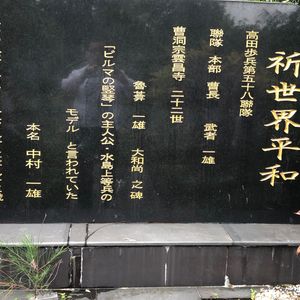 祈世界平和
高田歩兵第五十八聯隊
聯隊 本部 曹長 武者 一雄
曹洞宗雲昌寺 二十二世
一雄 大和尚 之碑
「ビルマの竪琴」の主人公・水島上等兵の
モデル と言われていた
本名 中村 一雄